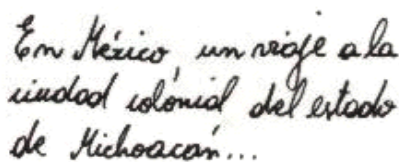 En México, un viaje a la
ciudad colonial del estado
de Michoacán...